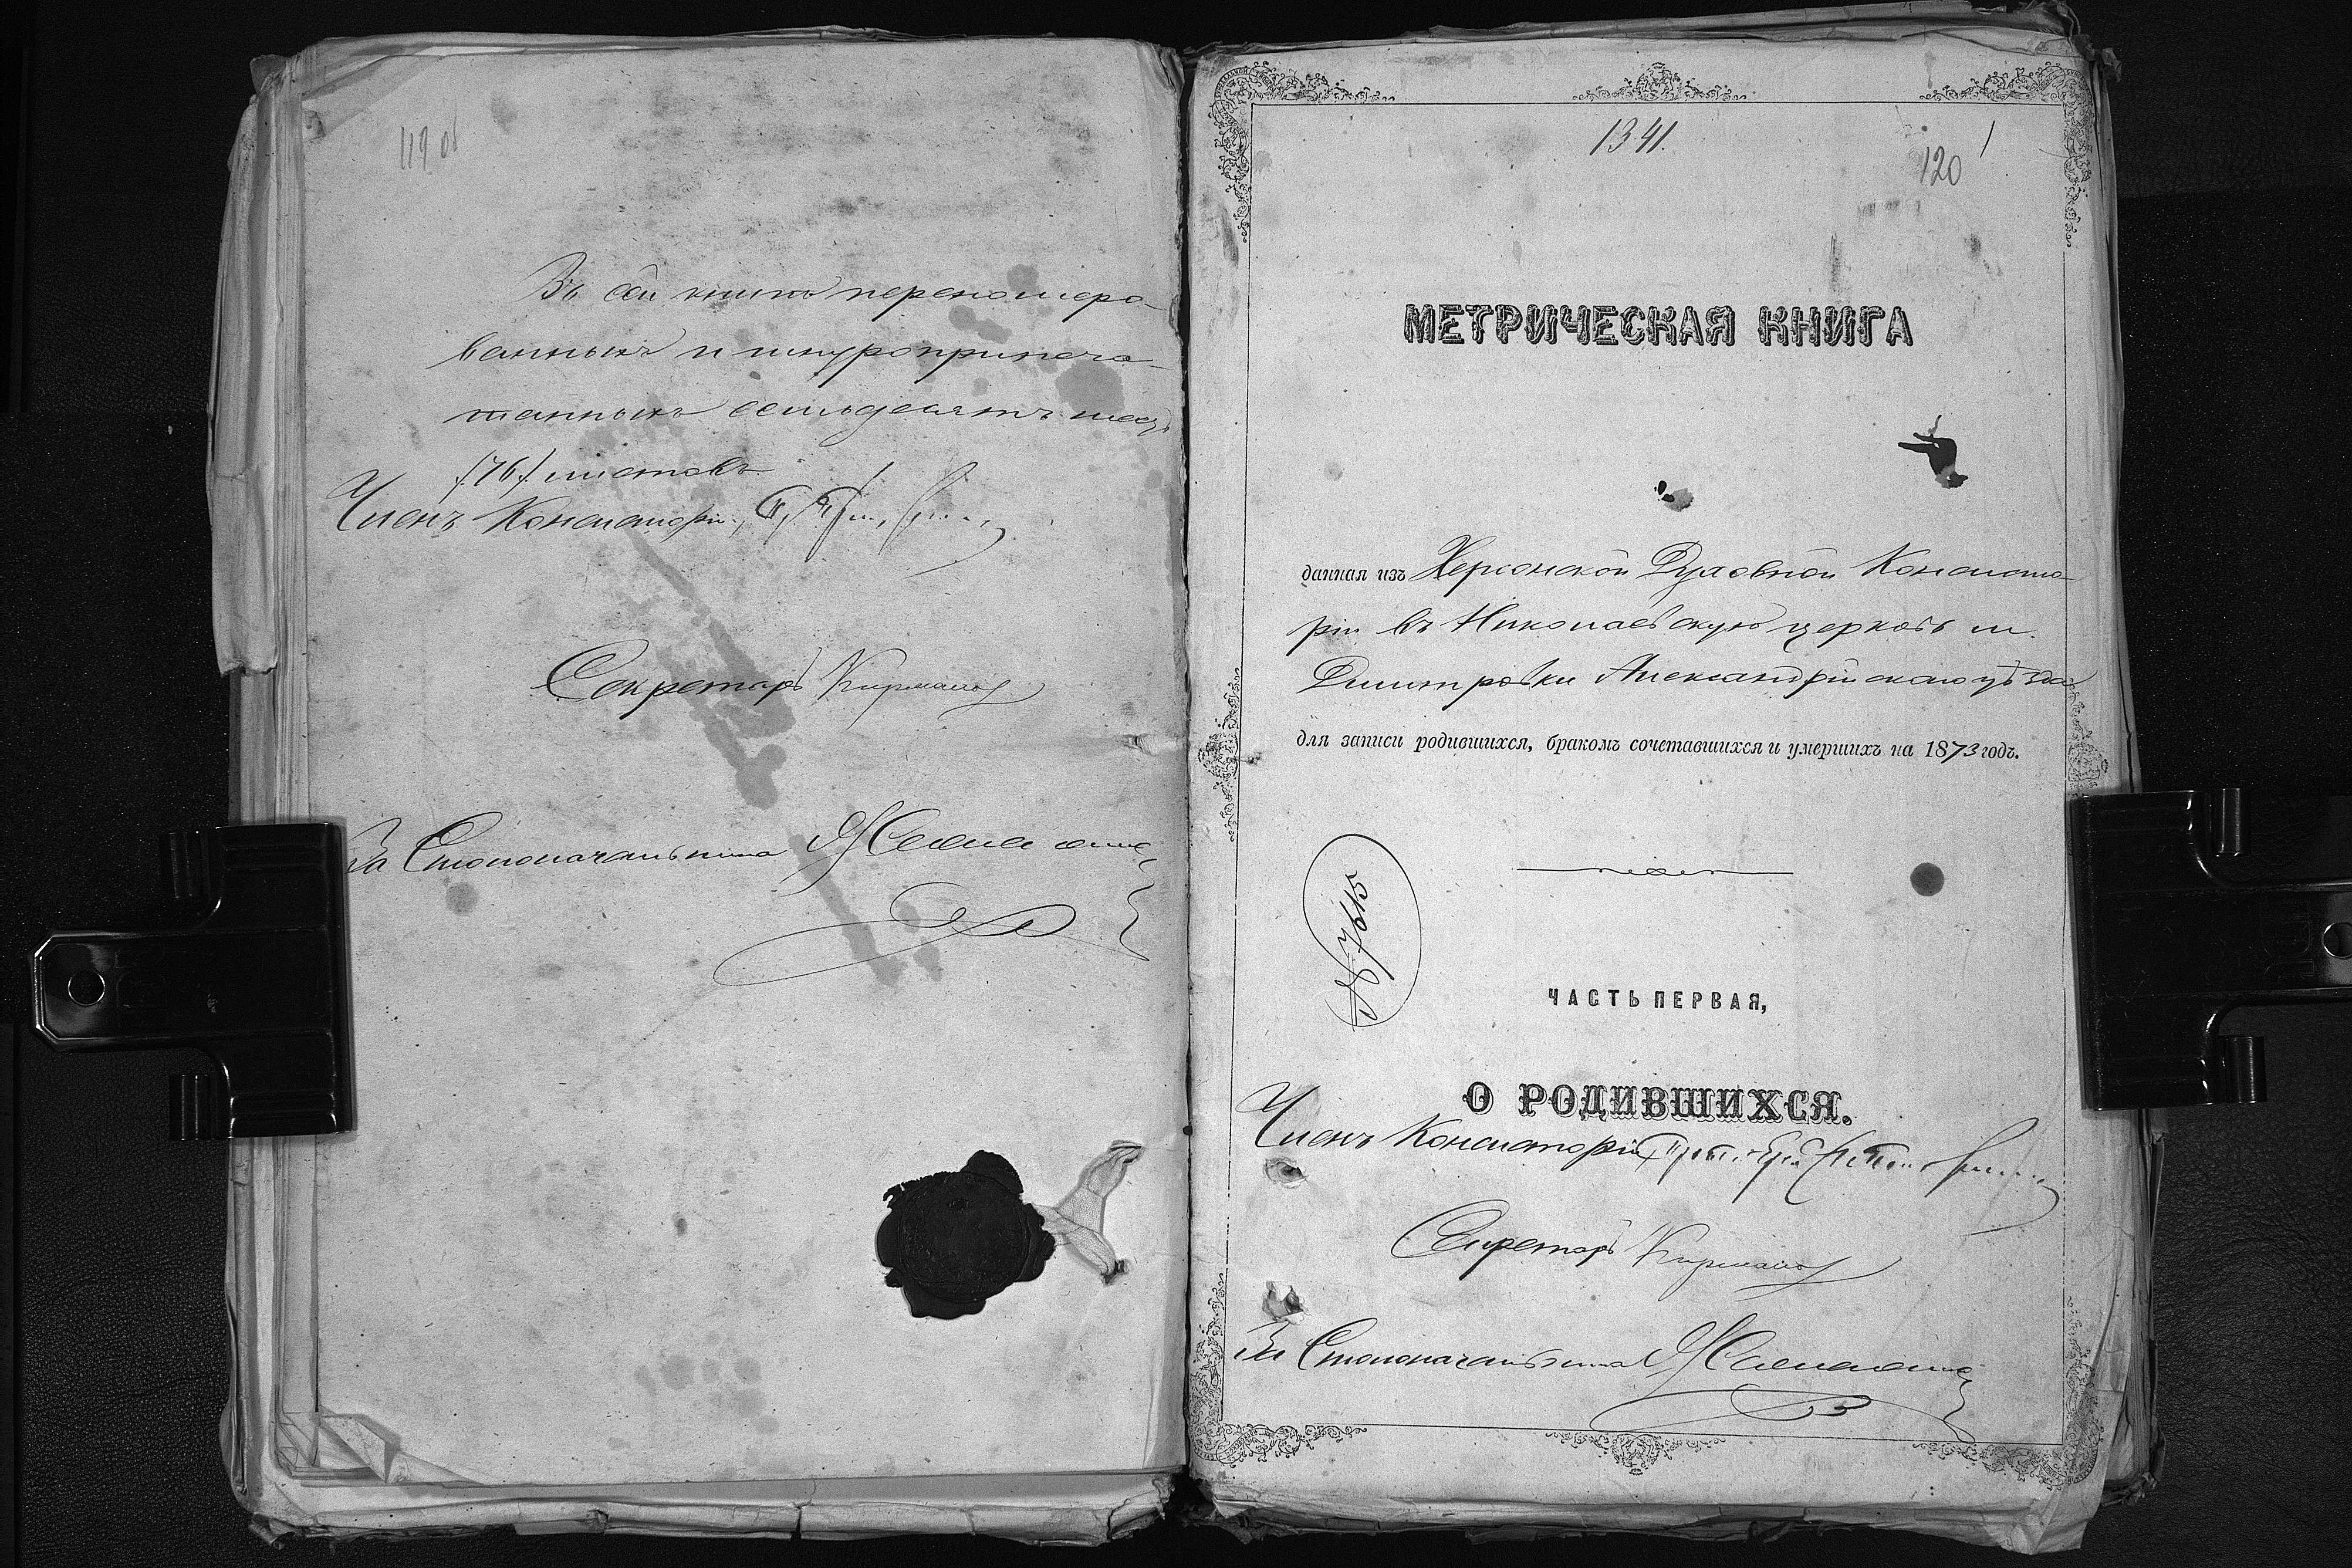 119 об
Въ сей книгѣ переномеро-
ванныхъ и шнуроприпеча-
танныхъ семьдесятъ шесть
(76) листовъ
Членъ Консисторіи
Секретарь
За Столоначальника
1341.
1
120
МЕТРИЧЕСКАЯ КНИГА
данная изъ Херсонской Духовной Консисто-
ріи въ Николаевскую церковь м.
Дмитровки Александрійскаго уѣзда
для записи родившихся, бракомъ сочетавшихся и умершихъ на 1873 годъ.
№ 7615
ЧАСТЬ ПЕРВАЯ,
О РОДИВШИХСЯ.
Членъ Консисторіи
Секретарь
За Столоначальника